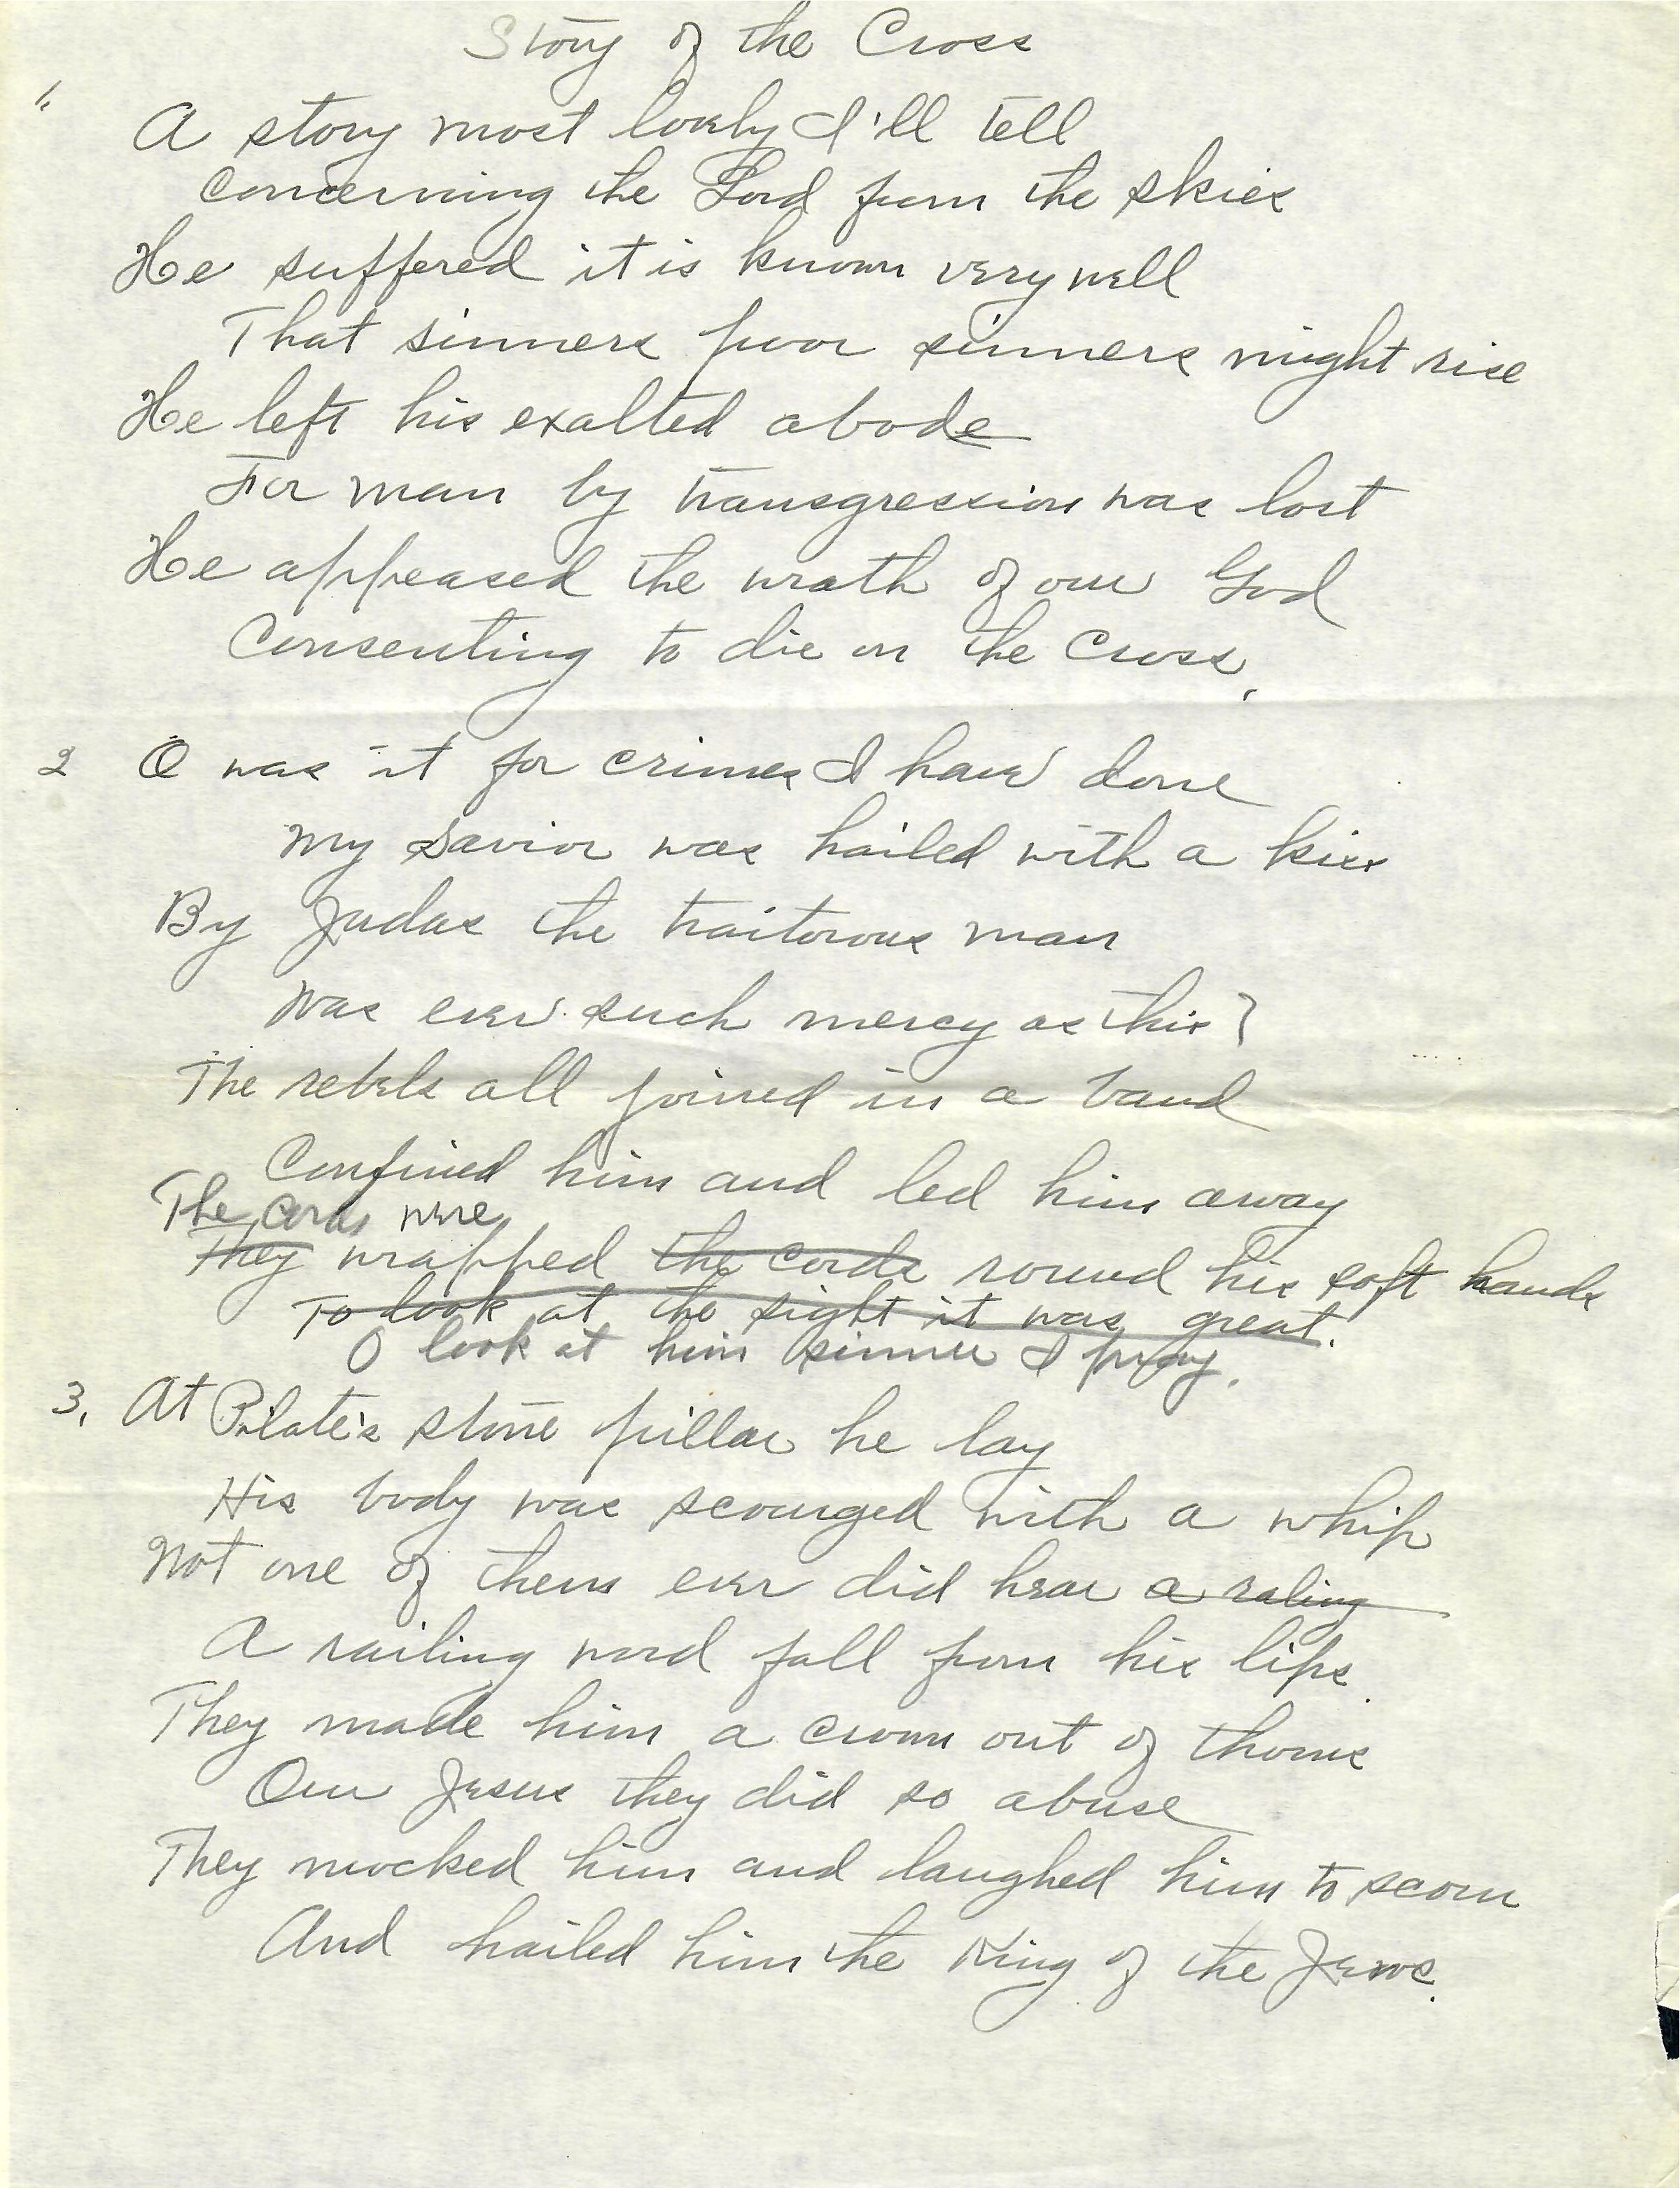 Story of the Cross
1.
A story most lovely I'll tell
Concerning the Lord from the skies
He suffered it is known very well
That sinners poor sinners might rise
He left his exalted abode
For man by transgression was lost
He appeased the wrath of our God
Consenting to die on the Cross,
2 O was it for crimes I have done
My Savior was hailed with a kiss
By Judas the traitorous man
Was ever such mercy as this?
The rebels all joined in a band
Confined him and led him away
The cords were
They wrapped the cords round his soft hands
To look at the sight it was great.
O look at him sinner I pray.
3. At Pilate's stone pillar he lay
His body was scourged with a whip
Not one of them ever did hear a raling
A railing word fall from his lips.
They made him a crown out of thorns
Our Jesus they did so abuse
They mocked him and laughed him to scorn
And hailed him the King of the Jews.